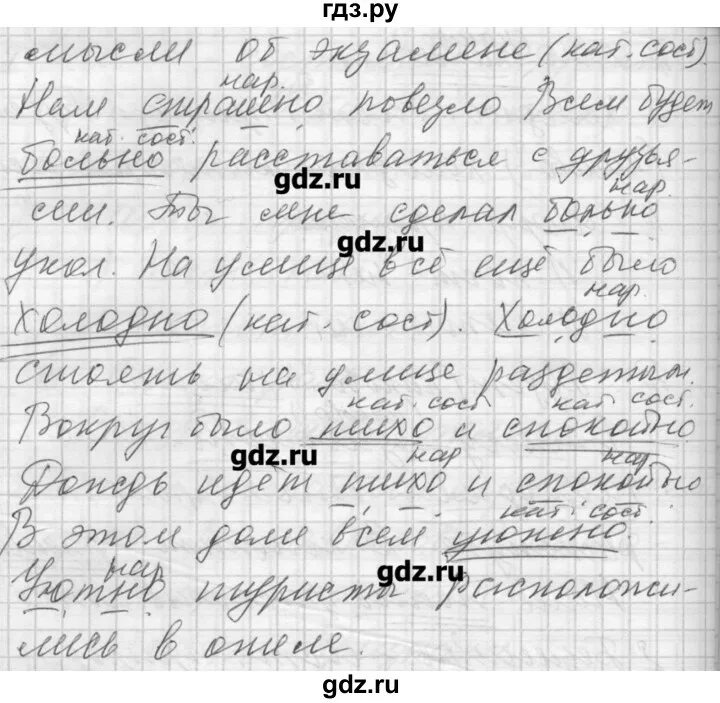 гдз.ру
мысли об экзамене (кат. сост).
нар.
Нам страшно повезло Всем будет
кат. сост.
больно расставаться с друзья-
gdz.ru
нар.
ми. Ты мне сделал больно
gdz.ru
укол. На улице всё ещё было
нар.
холодно (кат. сост). Холодно
стоять на улице раздетым.
кат. сост кат. сост.
Вокруг было тихо и спокойно
gdz.ru
нар нар.
Дождь идёт тихо и спокойно
кат. сост.
В этом доме всем уютно.
gdz.ru
нар
Уютно туристы расположи-
лись в отеле.
gdz.ru